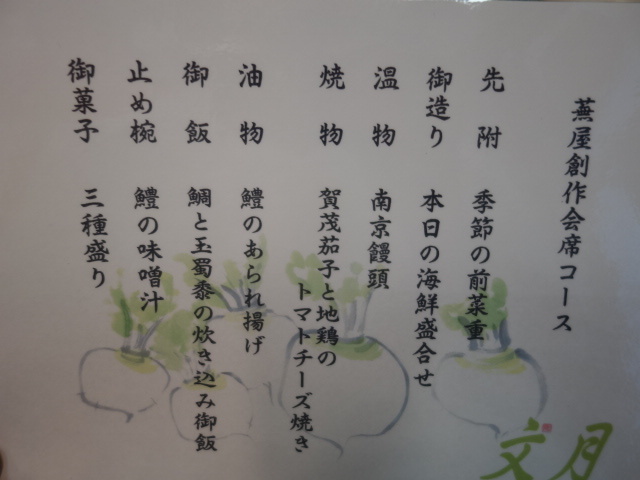 蕪屋創作会席コース
先附 季節の前菜重
御造り 本日の海鮮盛合せ
温物 南京饅頭
焼物 賀茂茄子と地鶏の
トマトチーズ焼き
油物 鱧のあられ揚げ
御飯 鯛と玉蜀黍の炊き込み御飯
止め椀 鱧の味噌汁
御菓子 三種盛り
文月